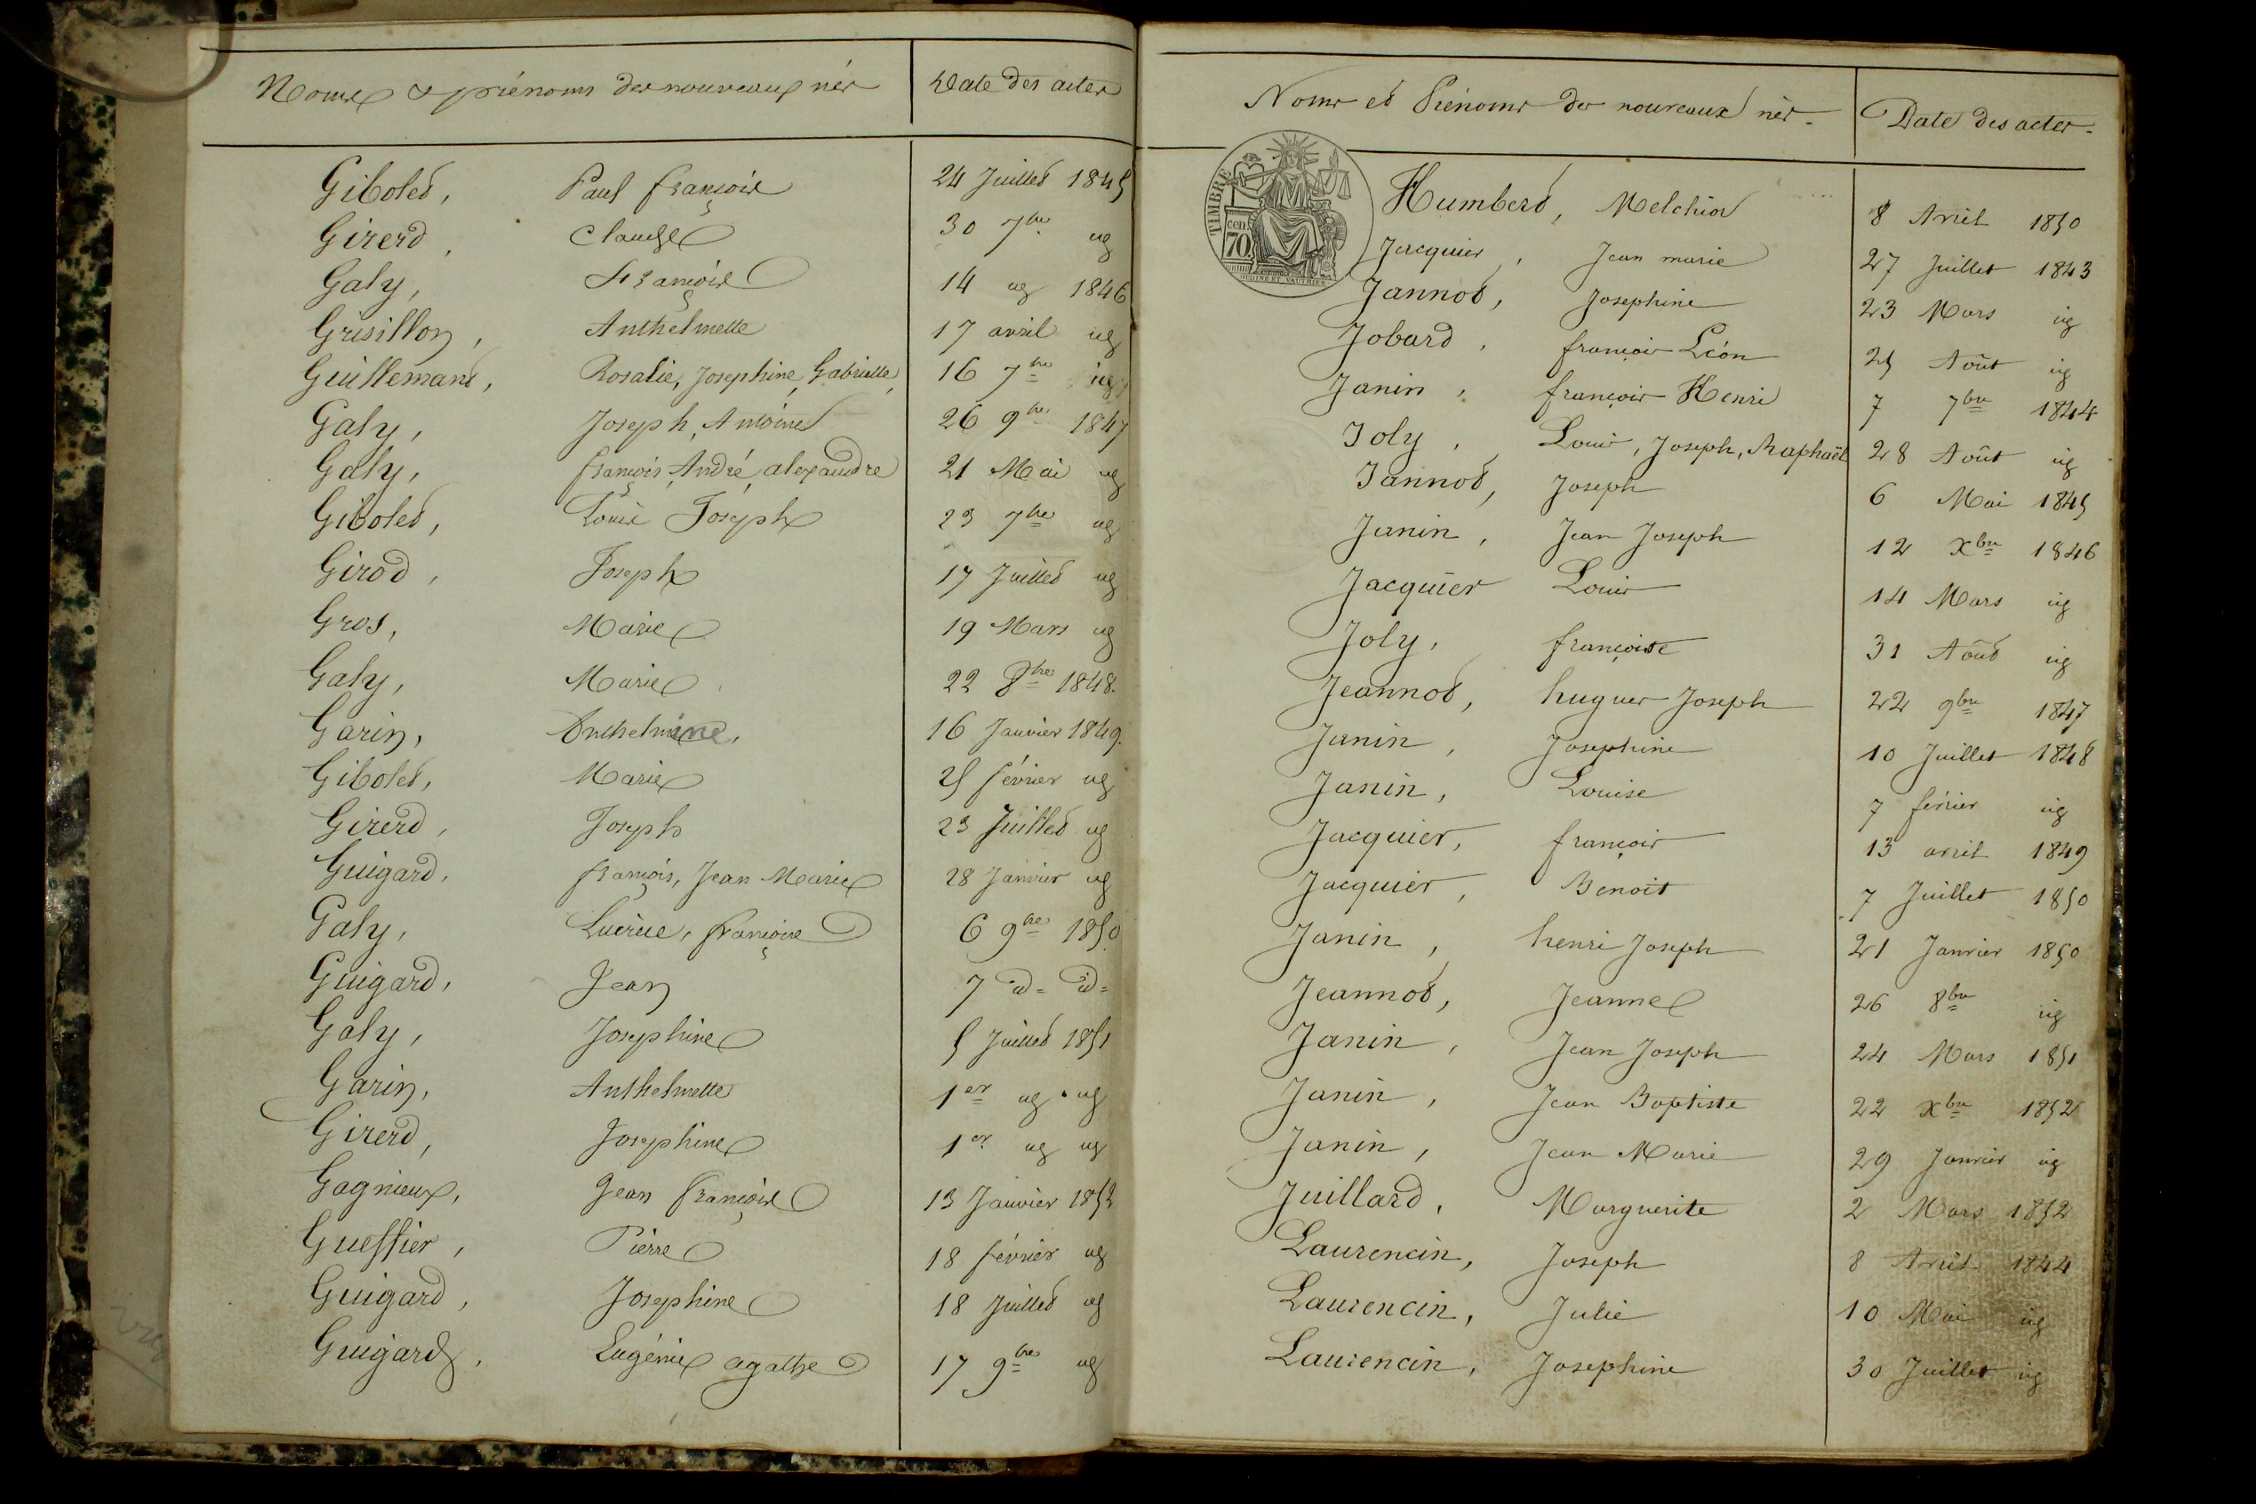 Noms & prénoms des nouveaux nés
Date des actes
Gibolet, Paul françois 24 Juillet 1845
Girerd, Claude 30 7bre ug
Galy, François 14 ug 1846
Grisillon, Anthelmette 17 avril ug
Guillemand, Rosalie, Josephine, Gabrielle 16 7bre ug
Galy, Joseph, Antoine 26 9bre 1847
Galy, françois André alexandre 21 Mai ug
Gibolet, Louis Joseph 23 7bre ug
Girod, Joseph 17 Juillet ug
Gros, Marie 19 Mars ug
Galy, Marie 22 8bre 1848.
Garin, Anthelmine, 16 Janvier 1849.
Gibolet, Marie 25 février ug
Girerd, Joseph 23 Juillet ug
Guigard, françois, Jean Marie 28 Janvier ug
Galy, françoise 6 9bre 1850
Guigard, Jean 7 id= id=
Galy, Josephine 5 Juillet 1851
Garin, Anthelmette 1er ug ug
Girerd, Josephine 1er ug ug
Gagnieux, Jean françois 13 Janvier 1852
Gueffier, Pierre 18 février ug
Guigard, Josephine 18 Juillet ug
Guigard, Eugénie agathe 17 9bre ug
Noms et Prénoms des nouveaux nés.
Date des actes.
TIMBRE
70 cen
Humbert, Melchior 8 Avril 1850
Jacquier, Jean marie 27 Juillet 1843
Jannot, Josephine 23 Mars ug
Jobard, françois Léon 25 Août ug
Janin, françois Henri 7 7bre 1844
Joly, Louis, Joseph, Raphaël 28 Août ug
Jannot, Joseph 6 Mai 1845
Janin, Jean Joseph 12 Xbre 1846
Jacquier Louis 14 Mars ug
Joly, françoise 31 Août ug
Jeannot, hugues Joseph 22 9bre 1847
Janin, Josephine 10 Juillet 1848
Janin, Louise 7 février ug
Jacquier, françois 13 avril 1849
Jacquier, Benoit 7 Juillet 1850
Janin, henri Joseph 21 Janvier 1850
Jeannot, Jeanne 26 8bre ug
Janin, Jean Joseph 24 Mars 1851
Janin, Jean Baptiste 22 Xbre 1852
Janin, Jean Marie 29 Janvier ug
Juillard, Marguerite 2 Mars 1852
Laurencin, Joseph 8 Avril 1844
Laurencin, Julie 10 Mai ug
Laurencin, Josephine 30 Juillet ug